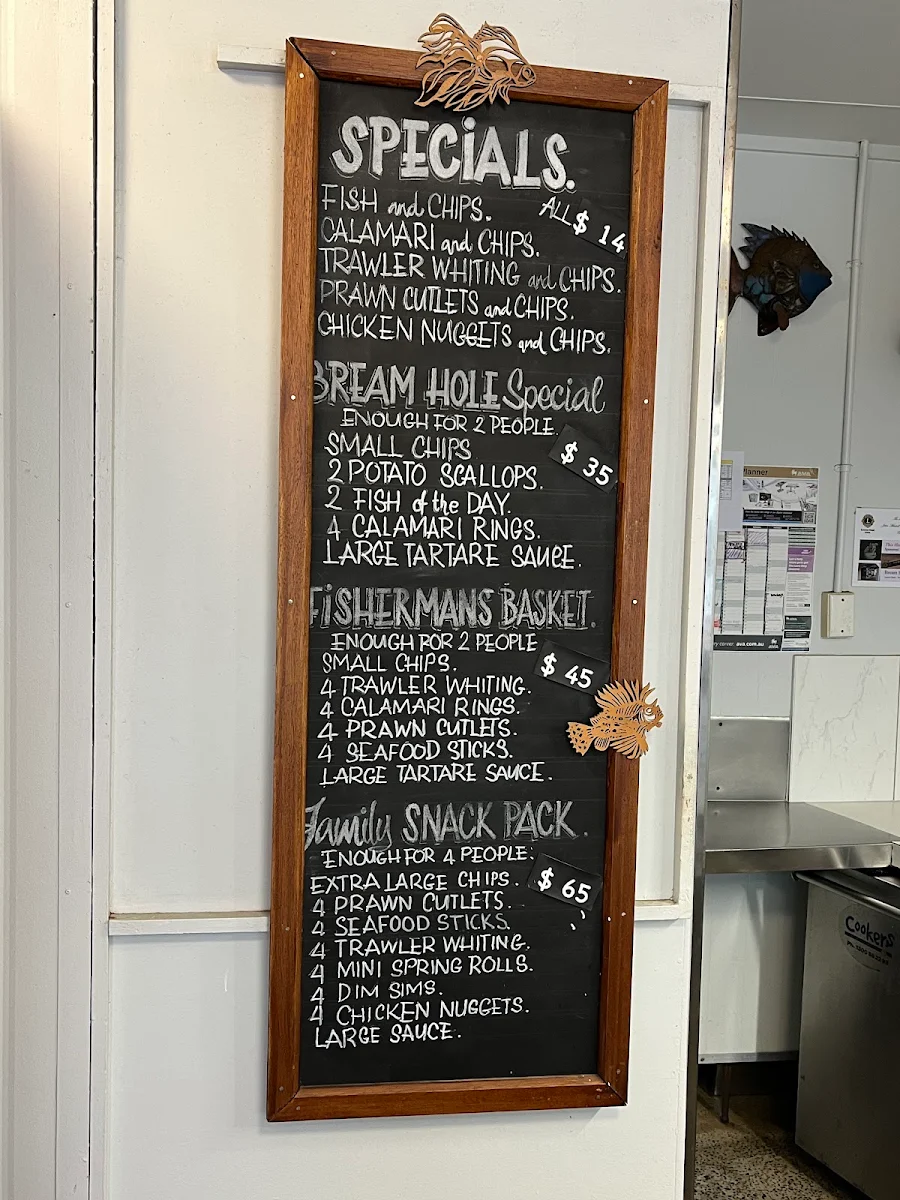 SPECiALS.
FISH and CHIPS.
ALL $ 14
CALAMARI and CHIPS.
TRAWLER WHITING and CHIPS.
PRAWN CUTLETS and CHIPS.
CHICKEN NUGGETS and CHIPS.
BREAM HOLE Special
ENOUGH FOR 2 PEOPLE.
SMALL CHIPS
$ 35
2 POTATO SCALLOPS.
2 FISH of the DAY.
4 CALAMARI RINGS.
LARGE TARTARE SAUCE.
FiSHERMANS BASKET.
ENOUGH FOR 2 PEOPLE
SMALL CHIPS.
$ 45
4 TRAWLER WHITING.
4 CALAMARI RINGS.
4 PRAWN CUTLETS.
4 SEAFOOD STICKS.
LARGE TARTARE SAUCE.
Family SNACK PACK.
ENOUGH FOR 4 PEOPLE:
EXTRA LARGE CHIPS.
$ 65
4 PRAWN CUTLETS.
4 SEAFOOD STICKS.
4 TRAWLER WHITING.
4 MINI SPRING ROLLS.
4 DIM SIMS.
4 CHICKEN NUGGETS.
LARGE SAUCE.
lanner
ava.com.au
Cookers